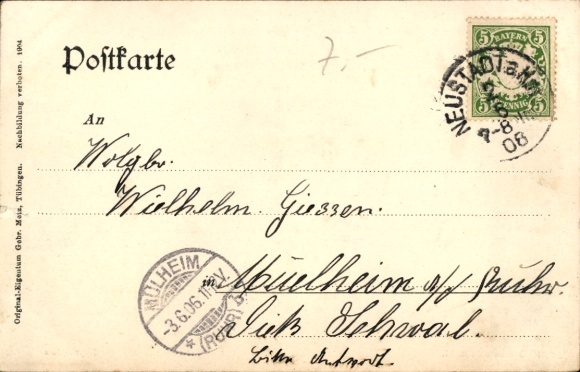 Postkarte
7.-
An
Wolgbr.
Wielhelm Giessen.
in Muelheim a/d Ruhr.
Bitte Antwort.
5 BAYERN 5
5 PFENNIG 5
NEUSTADT a. H.
08
MÜLHEIM
-3.6.06.
* (RUHR)
Original-Eigentum Gebr. Metz, Tübingen. Nachbildung verboten. 1904